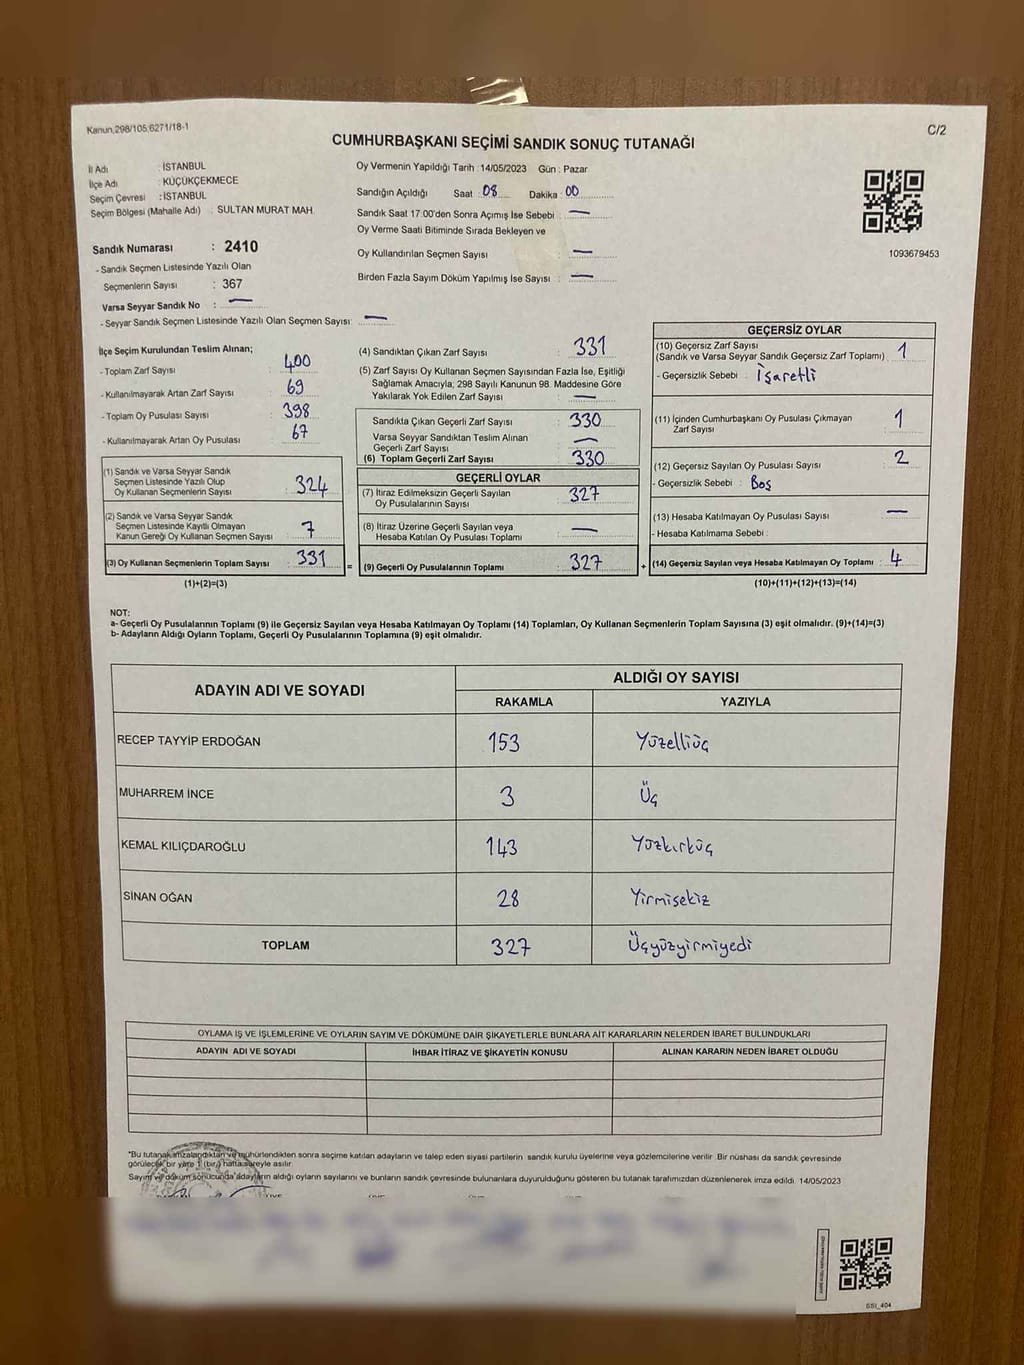 Kanun,298/105,6271/18-1
C/2
CUMHURBAŞKANI SEÇİMİ SANDIK SONUÇ TUTANAĞI
İl Adı : İSTANBUL
İlçe Adı : KÜÇÜKÇEKMECE
Seçim Çevresi : İSTANBUL
Seçim Bölgesi (Mahalle Adı) : SULTAN MURAT MAH.
Sandık Numarası : 2410
- Sandık Seçmen Listesinde Yazılı Olan
Seçmenlerin Sayısı : 367
Varsa Seyyar Sandık No : —
- Seyyar Sandık Seçmen Listesinde Yazılı Olan Seçmen Sayısı: —
Oy Vermenin Yapıldığı Tarih : 14/05/2023 Gün : Pazar
Sandığın Açıldığı Saat : 08 Dakika : 00
Sandık Saat 17:00'den Sonra Açımış İse Sebebi : —
Oy Verme Saati Bitiminde Sırada Bekleyen ve
Oy Kullandırılan Seçmen Sayısı : —
Birden Fazla Sayım Döküm Yapılmış İse Sayısı : —
1093679453
İlçe Seçim Kurulundan Teslim Alınan;
- Toplam Zarf Sayısı : 400
- Kullanılmayarak Artan Zarf Sayısı : 69
- Toplam Oy Pusulası Sayısı : 398
- Kullanılmayarak Artan Oy Pusulası : 67
(1) Sandık ve Varsa Seyyar Sandık
Seçmen Listesinde Yazılı Olup
Oy Kullanan Seçmenlerin Sayısı : 324
(2) Sandık ve Varsa Seyyar Sandık
Seçmen Listesinde Kayıtlı Olmayan
Kanun Gereği Oy Kullanan Seçmen Sayısı : 7
(3) Oy Kullanan Seçmenlerin Toplam Sayısı : 331
(1)+(2)=(3)
=
(4) Sandıktan Çıkan Zarf Sayısı : 331
(5) Zarf Sayısı Oy Kullanan Seçmen Sayısından Fazla İse, Eşitliği
Sağlamak Amacıyla; 298 Sayılı Kanunun 98. Maddesine Göre
Yakılarak Yok Edilen Zarf Sayısı : —
Sandıkta Çıkan Geçerli Zarf Sayısı : 330
Varsa Seyyar Sandıktan Teslim Alınan
Geçerli Zarf Sayısı : —
(6) Toplam Geçerli Zarf Sayısı : 330
GEÇERLİ OYLAR
(7) İtiraz Edilmeksizin Geçerli Sayılan
Oy Pusulalarının Sayısı : 327
(8) İtiraz Üzerine Geçerli Sayılan veya
Hesaba Katılan Oy Pusulası Toplamı : —
(9) Geçerli Oy Pusulalarının Toplamı : 327
+
GEÇERSİZ OYLAR
(10) Geçersiz Zarf Sayısı
(Sandık ve Varsa Seyyar Sandık Geçersiz Zarf Toplamı) : 1
- Geçersizlik Sebebi : İşaretli
(11) İçinden Cumhurbaşkanı Oy Pusulası Çıkmayan
Zarf Sayısı : 1
(12) Geçersiz Sayılan Oy Pusulası Sayısı : 2
- Geçersizlik Sebebi : Boş
(13) Hesaba Katılmayan Oy Pusulası Sayısı : —
- Hesaba Katılmama Sebebi :
(14) Geçersiz Sayılan veya Hesaba Katılmayan Oy Toplamı : 4
(10)+(11)+(12)+(13)=(14)
NOT:
a- Geçerli Oy Pusulalarının Toplamı (9) ile Geçersiz Sayılan veya Hesaba Katılmayan Oy Toplamı (14) Toplamları, Oy Kullanan Seçmenlerin Toplam Sayısına (3) eşit olmalıdır. (9)+(14)=(3)
b- Adayların Aldığı Oyların Toplamı, Geçerli Oy Pusulalarının Toplamına (9) eşit olmalıdır.
ADAYIN ADI VE SOYADI
ALDIĞI OY SAYISI
RAKAMLA YAZIYLA
RECEP TAYYİP ERDOĞAN 153 Yüzelliüç
MUHARREM İNCE 3 Üç
KEMAL KILIÇDAROĞLU 143 Yüzkırküç
SİNAN OĞAN 28 Yirmisekiz
TOPLAM 327 Üçyüzyirmiyedi
OYLAMA İŞ VE İŞLEMLERİNE VE OYLARIN SAYIM VE DÖKÜMÜNE DAİR ŞİKAYETLERLE BUNLARA AİT KARARLARIN NELERDEN İBARET BULUNDUKLARI
ADAYIN ADI VE SOYADI İHBAR İTİRAZ VE ŞİKAYETİN KONUSU ALINAN KARARIN NEDEN İBARET OLDUĞU
"Bu tutanak imzalandıktan ve mühürlendikten sonra seçime katılan adayların ve talep eden siyasi partilerin sandık kurulu üyelerine veya gözlemcilerine verilir. Bir nüshası da sandık çevresinde
görülecek bir yere 1 (bir) hafta süreyle asılır.
Sayım ve döküm sonucunda adayların aldığı oyların sayılarını ve bunların sandık çevresinde bulunanlara duyurulduğunu gösteren bu tutanak tarafımızdan düzenlenerek imza edildi. 14/05/2023
SSI_404